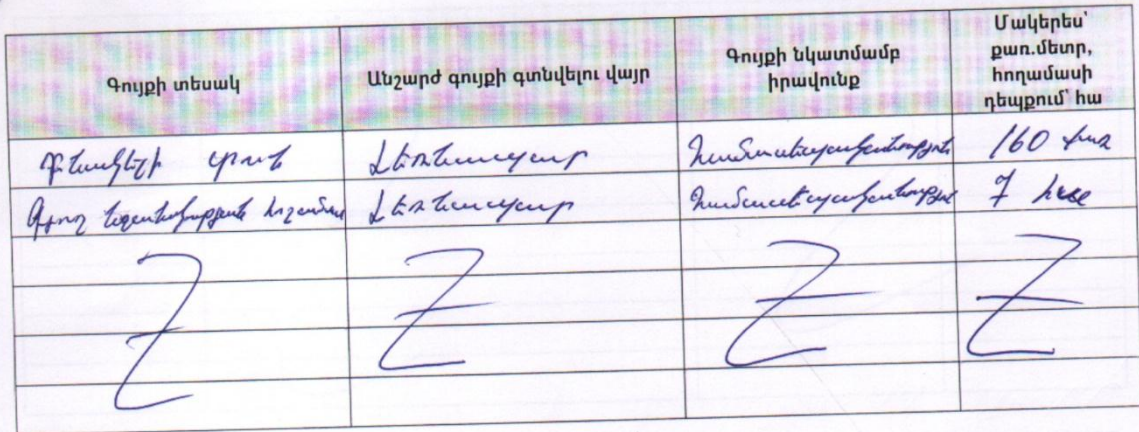 Գույքի տեսակ
Անշարժ գույքի գտնվելու վայր
Գույքի նկատմամբ
իրավունք
Մակերես՝
քառ.մետր,
հողամասի
դեպքում՝ հա
Բնակելի տուն
Լեռնապար
համասեփականություն
160 քառ
Գյուղ նշանակության հողամաս
Լեռնապար
համասեփականություն
7 հա